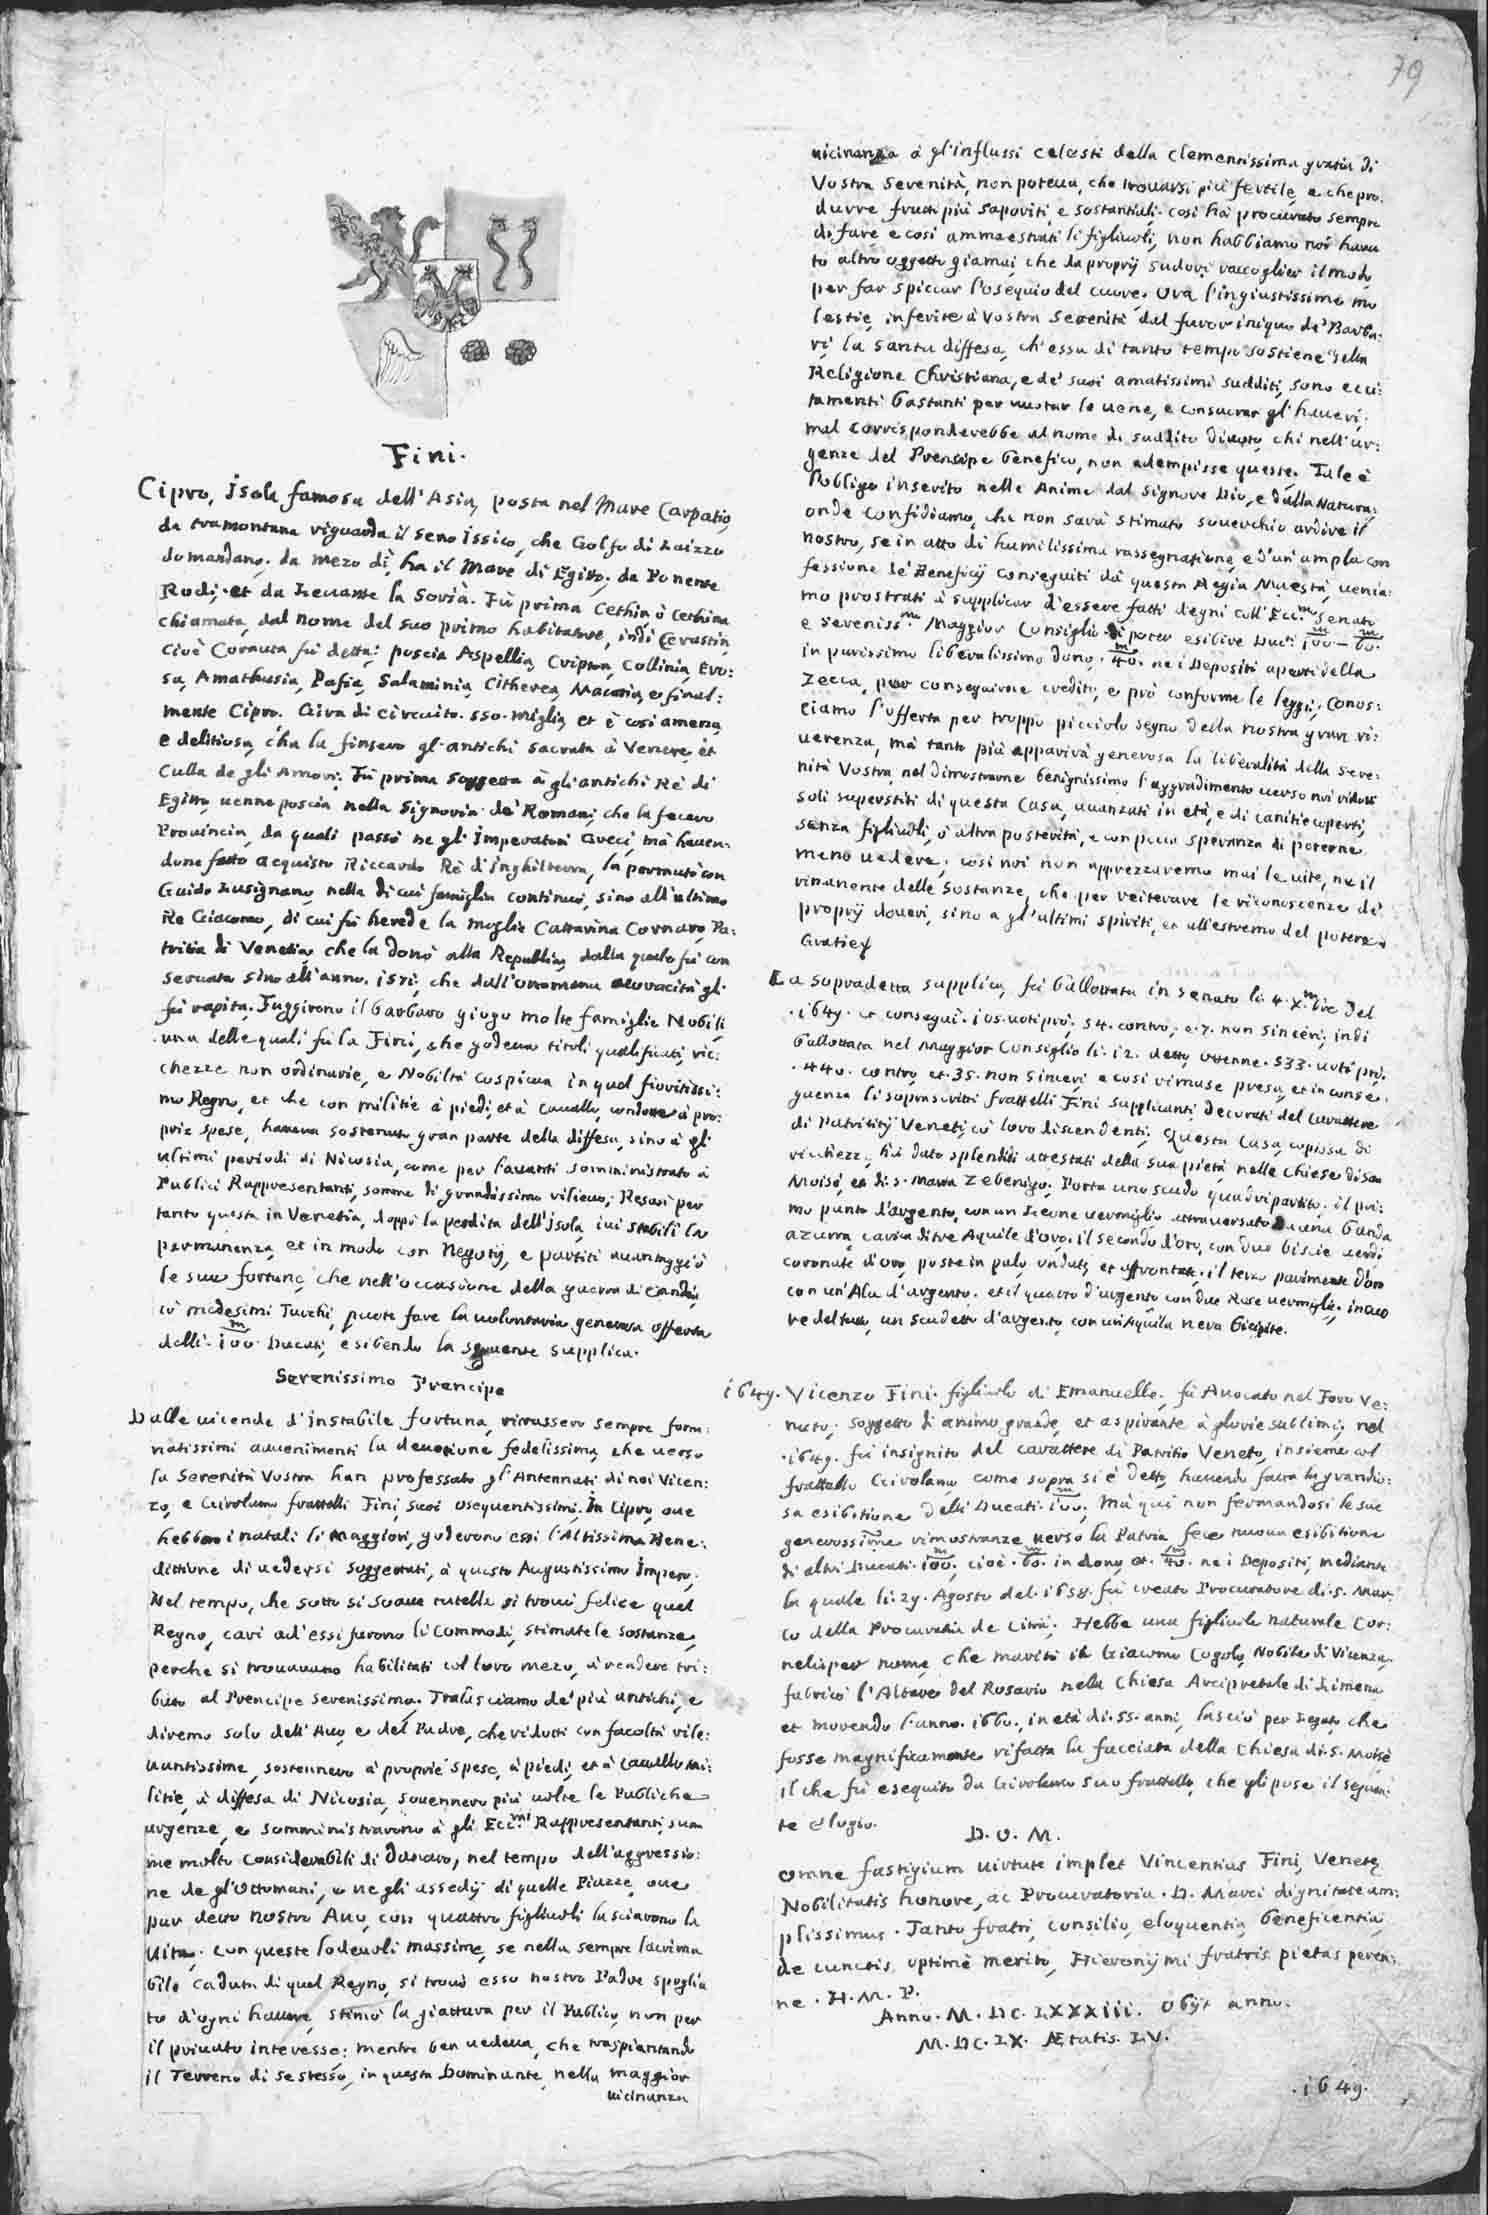 79
Fini.
Cipro, isola famosa dell'Asia, posta nel Mare Carpatio,
da tramontana riguarda il seno Issico, che Golfo di Laizzo
domandano; da mezo dì, ha il Mare di Egitto; da Ponente
Rodi; et da Levante la Sorìa. Fù prima Cethin, ò Cethina
chiamata, dal nome del suo primo habitatore, indi Cerastin,
cioè Cornuta fù detta; poscia Aspellia, Cripton, Collinia, Ero:
sa, Amathusia, Pafia, Salaminia, Citherea, Macaria, e final:
mente Cipro. Gira di circuito .550. miglia, et è così amena,
e delitiosa, cha la finsero gl'antichi sacrata à Venere, et
Culla de gli Amori. Fù prima soggetta à gli antichi Rè di
Egitto, uenne poscia nella Signoria de' Romani, che la fecero
Prouincia, da quali passò ne gl'Imperatori Greci, mà hauen:
done fatto acquisto Riccardo Rè d'Inghilterra, la permutò con
Guido Lusignano, nella di cui famiglia continuò, sino all'ultimo
Re Giacomo, di cui fù herede la moglie Cattarina Cornaro, Pa:
tritia di Venetia, che la donò alla Republica, dalla quale fù con
seruata sino all'anno. 1571, che dall'ottomana uoracità gli
fù rapita. Fuggirono il barbaro giogo molte famiglie Nobili
una delle quali fù la Fini, che godeua titoli qualificati, ric:
chezze non ordinarie, e Nobiltà cospicua in quel fioritissi:
mo Regno, et che con militie à piedi, et à cauallo, condotte à pro:
prie spese, haueua sostenuto gran parte della diffesa, sino à gli
ultimi periodi di Nicosia, come per l'auanti somministrato à
Publici Rappresentanti, somme di grandissimo rilieuo; Resasi per
tanto questa in Venetia, doppo la perdita dell'isola, iui stabilì la
permanenza, et in modo con Negotij, e partiti auantaggiò
le sue fortune, che nell'occasione della guerra di Candia,
cò medesimi Turchi, puote fare la uoluntaria generosa offerta
delli. 100 m Ducati, esibendo la seguente supplica.
Serenissimo Prencipe
Dalle uicende d'instabile fortuna, rimassero sempre form:
natissimi auuenimenti la deuotione, fedelissima, che uerso
la Serenità Vostra han professato gl'Antennati di noi Vicen:
zo, e Girolamo frattelli Fini, suoi osequentissimi. In Cipro, oue
hebbero i natali li Maggiori, goderono essi l'Altissima Bene:
dittione di uedersi soggettati, à questo Augustissimo Impero.
Nel tempo, che sotto si soaue tutella si trouò felice quel
Regno, cari ad'essi furono li Commodi, stimate le sostanze,
perche si trouauano habilitati col loro mezo, à rendere tri:
buto al Prencipe Serenissimo. Tralasciamo de' più antichi, e
diremo solo dell'Auo, e del Padre, che ridotti con facoltà rile:
uantissime, sostennero à proprie spese, à piedi, et à Cauallo Mi:
litie, à diffesa di Nicosia, souennero più uolte le Publiche
urgenze, e somministrarono à gli Ecc.mi Rappresentanti, som
me molto considerabili di danaro, nel tempo dell'aggressio:
ne de gl'Ottomani, e ne gli assedij di quelle Piazze, oue
pur detto nostro Auo, con quattro figliuoli lasciarono la
uita. Con queste lodeuoli massime, se nella sempre lacrima
bile caduta di quel Regno, si trouò esso nostro Padre spoglia
to d'ogni hauere, stimò la giattura per il Publico, non per
il priuato interesse; mentre ben uedeua, che traspiantando
il Terreno di se stesso, in questa Dominante, nella maggior
uicinanza
uicinanza à gl'influssi celesti della clementissima gratia di
Vostra Serenità, non poteua, che trouarsi più fertile, e che pro:
durre frutti più saporiti, e sostantiali. così hà procurato sempre
di fare, e così ammaestrati li figliuoli, non habbiamo noi hauu
to altro oggetto giamai, che da proprij sudori raccoglier il modo
per far spiccar l'osequio del cuore. Ora l'ingiustissime mo
lestie, inferite à Vostra Serenità dal furor iniquo de' Barba:
ri, la santa diffesa, ch'essa di tanto tempo sostiene della
Religione Christiana, e de' suoi amatissimi sudditi, sono ecci:
tamenti bastanti per uuotar le uene, e consacrar gl'haueri;
mal corrisponderebbe al nome di suddito diuoto, chi nell'ur:
genze del Prencipe benefico, non adempisse queste. Tale è
l'obligo inserito nelle Anime dal Signore Dio, e dalla Natura;
onde confidiamo, che non sarà stimato souerchio ardire il
nostro, se in atto di humilissima rassegnatione, e d'un'ampla con
fessione de' Beneficij conseguiti dà questa Regia Maestà, uenia:
mo prostrati à supplicar d'essere fatti degni coll'Ecc.mo Senato
e Sereniss.mo Maggior Consiglio di poter esibire Duc.i 100 m – 60 m
in purissimo liberalissimo dono. 40 m. ne i Depositi aperti della
Zecca, per conseguirne credito, e prò conforme le leggi; conos:
ciamo l'offerta per troppo picciolo segno della nostra gran ri:
uerenza, mà tanto più apparirà generosa la liberalità della Sere:
nità Vostra, nel dimostrarne benignissimo l'aggradimento uerso noi ridotti
soli superstiti di questa Casa, auanzati in età, e di canitie coperti,
senza figliuoli, ò altra posterità, e con poca speranza di poterne
meno uedere; così noi non apprezzaremo mai le uite, ne il
rimanente delle sostanze, che per reiterare le riconoscenze de'
proprij doueri, sino a gl'ultimi spiriti, et all'estremo del potere.
Gratie
La sopradetta supplica, fù ballottata in Senato li. 4. X.mbre del
.1649. et conseguì. 105. uoti prò. 54. contro, e. 7. non sinceri; indi
ballottata nel Maggior Consiglio li. 12. detto, ottenne. 533. uoti prò.
.440. contro, et. 35. non sinceri, e così rimase presa, et in conse:
guenza li soprascritti frattelli Fini supplicanti, decorati del carattere
di Patritij Veneti, cò loro discendenti. Questa Casa, copiosa di
richezze, hà dato splendidi attestati della sua pietà nelle Chiese di San
Moisè, et di S. Maria Zebenigo. Porta uno scudo quadripartito. il pri:
mo punto d'argento, con un Leone uermiglio attrauersato da una banda
azurra, carica di tre Aquile d'oro. il secondo d'oro, con due biscie uerdi
coronate d'oro, poste in palo, ondate, et affrontate. il terzo parimente d'oro
con un'Ala d'argento. et il quarto d'argento con due Rose uermiglie. in cuo
re del tutto, un scudetto d'argento, con un'Aquila nera bicipite.
1649. Vicenzo Fini. figliuolo di Emanuelle, fù Auocato nel Foro Ve:
neto; soggetto di animo grande, et aspirante à glorie sublimi; nel
.1649. fù insignito del carattere di Patritio Veneto, insieme col
frattello Girolamo come sopra si è detto, hauendo fatta la grandio:
sa esibitione delli Ducati. 100 m. Mà qui non fermandosi le sue
generosissime rimostranze uerso la Patria, fece nuoua esibitione
di altri Ducati. 100 m, cioè. 60 m. in dono, et. 40 m. ne i Depositi, mediante
la quale li. 29. Agosto del. 1658. fù creato Procuratore di. S. Mar:
co della Procuratia de Citrà. Hebbe una figliuola naturale Cor:
nelia per nome, che maritò in Giacomo Cogolo, Nobile di Vicenza,
fabricò l'Altare del Rosario nella Chiesa Arcipretale di Limena
et morendo l'anno. 1660., in età di. 55. anni, lasciò per Legato che
fosse magnificamente rifatta la facciata della Chiesa di. S. Moisè
il che fù esequito da Girolamo suo frattello, che gli pose il seguen:
te elogio.
D. O. M.
Omne fastigium uirtute implet Vincentius Fini, Venetę
Nobilitatis honore, ac Procuratoria. D. Marci dignitate am:
plissimus. Tanto fratri, consilio, eloquentia, beneficentia,
de cunctis optimè merito, Hieronijmi fratris pietas peren:
ne. H. M. P.
Anno. M. DC. LXXXIII. Obijt anno.
M. DC. LX. Ætatis. LV.
.1649.